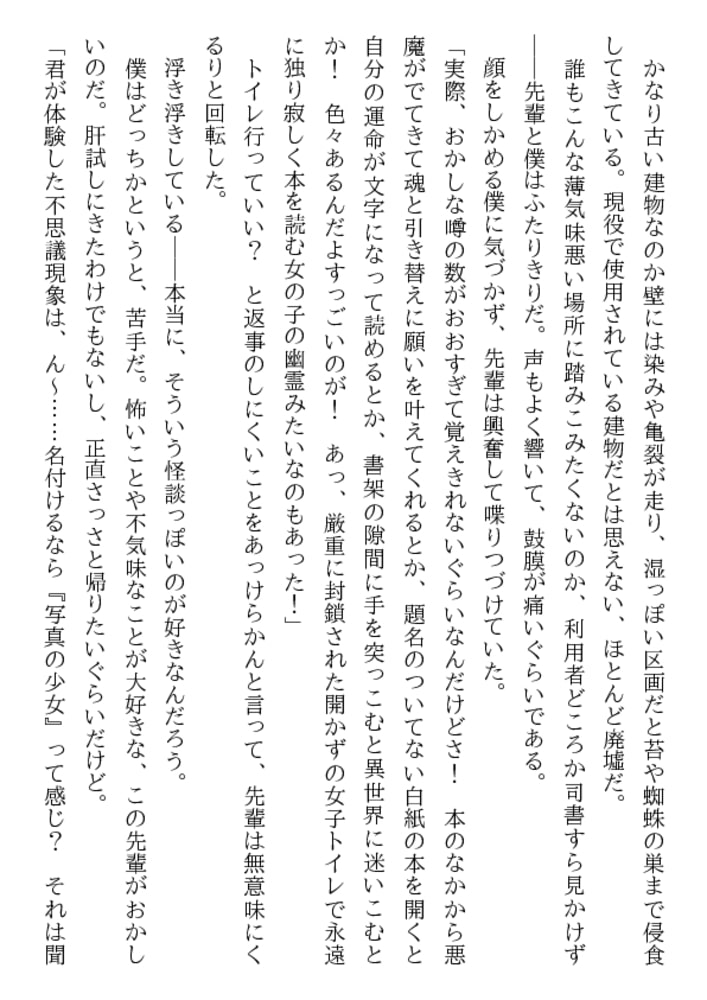 かなり古い建物なのか壁には染みや亀裂が走り、湿っぽい区画だと苔や蜘蛛の巣まで侵食
してきている。現役で使用されている建物だとは思えない、ほとんど廃墟だ。
　誰もこんな薄気味悪い場所に踏みこみたくないのか、利用者どころか司書すら見かけず
――先輩と僕はふたりきりだ。声もよく響いて、鼓膜が痛いぐらいである。
　顔をしかめる僕に気づかず、先輩は興奮して喋りつづけていた。
「実際、おかしな噂の数がおおすぎて覚えきれないぐらいなんだけどさ！　本のなかから悪
魔がでてきて魂と引き替えに願いを叶えてくれるとか、題名のついてない白紙の本を開くと
自分の運命が文字になって読めるとか、書架の隙間に手を突っこむと異世界に迷いこむと
か！　色々あるんだよすっごいのが！　あっ、厳重に封鎖された開かずの女子トイレで永遠
に独り寂しく本を読む女の子の幽霊みたいなのもあった！」
　トイレ行っていい？　と返事のしにくいことをあっけらかんと言って、先輩は無意味にく
るりと回転した。
　浮き浮きしている――本当に、そういう怪談っぽいのが好きなんだろう。
　僕はどっちかというと、苦手だ。怖いことや不気味なことが大好きな、この先輩がおかし
いのだ。肝試しにきたわけでもないし、正直さっさと帰りたいぐらいだけど。
「君が体験した不思議現象は、ん～……名付けるなら『写真の少女』って感じ？　それは聞